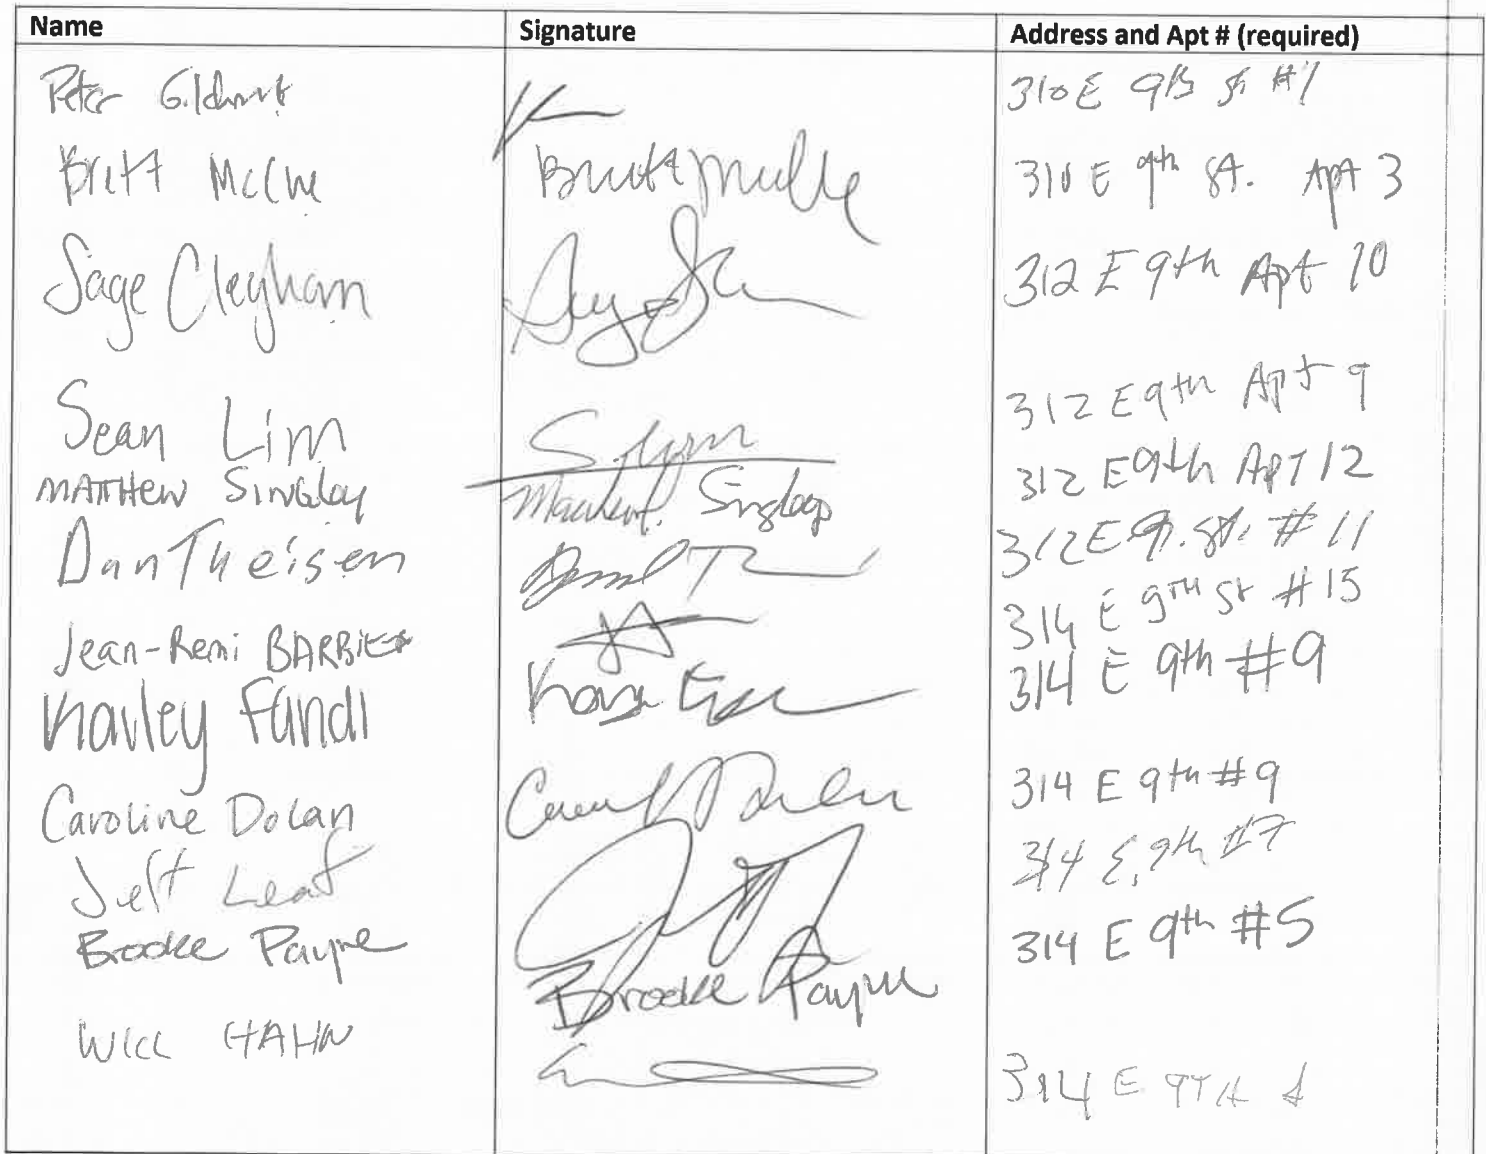 Name Signature Address and Apt # (required)
Peter 310 E 9th St #1
Britt McCue Britt McCue 310 E 9th St. Apt 3
Sage Cleyham 312 E 9th Apt 10
Sean Lim S Lim 312 E 9th Apt 9
MATTHEW SINGLEY Matthew Singley 312 E 9th APT 12
Dan Theisen 312 E 9. St. #11
Jean-Remi BARBIER 314 E 9TH St #15
Kayley Fandl 314 E 9th #9
Caroline Dolan 314 E 9th #9
Jeff Leaf 314 E, 9th #7
Brooke Payne Brooke Payne 314 E 9th #5
WILL HAHN 314 E 9TH